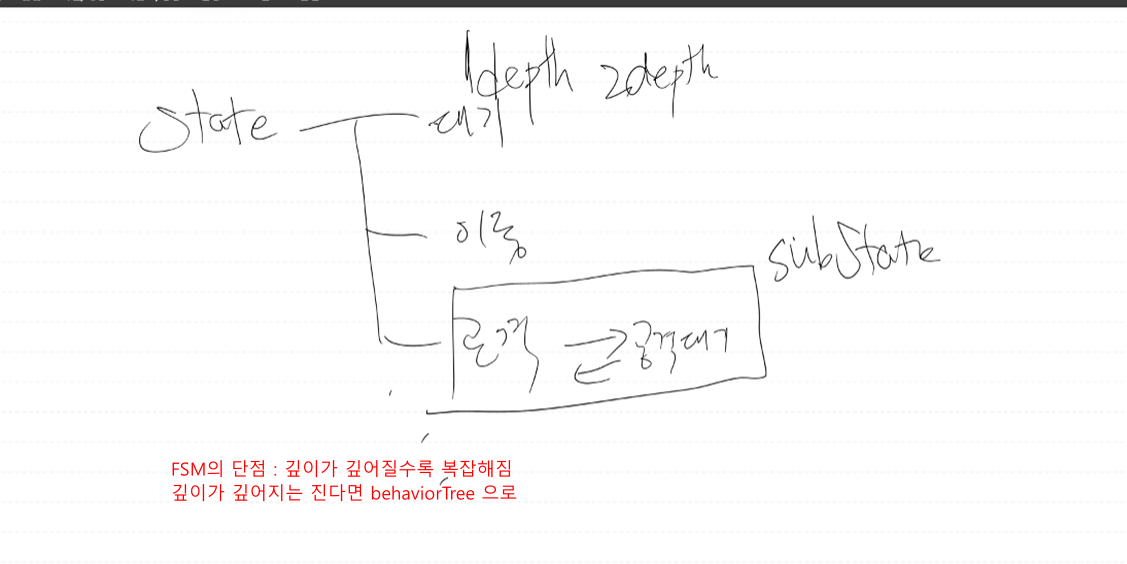 1depth 2depth
State 대기
이동
subState
공격 공격대기
FSM의 단점 : 깊이가 깊어질수록 복잡해짐
깊이가 깊어지는 진다면 behaviorTree 으로